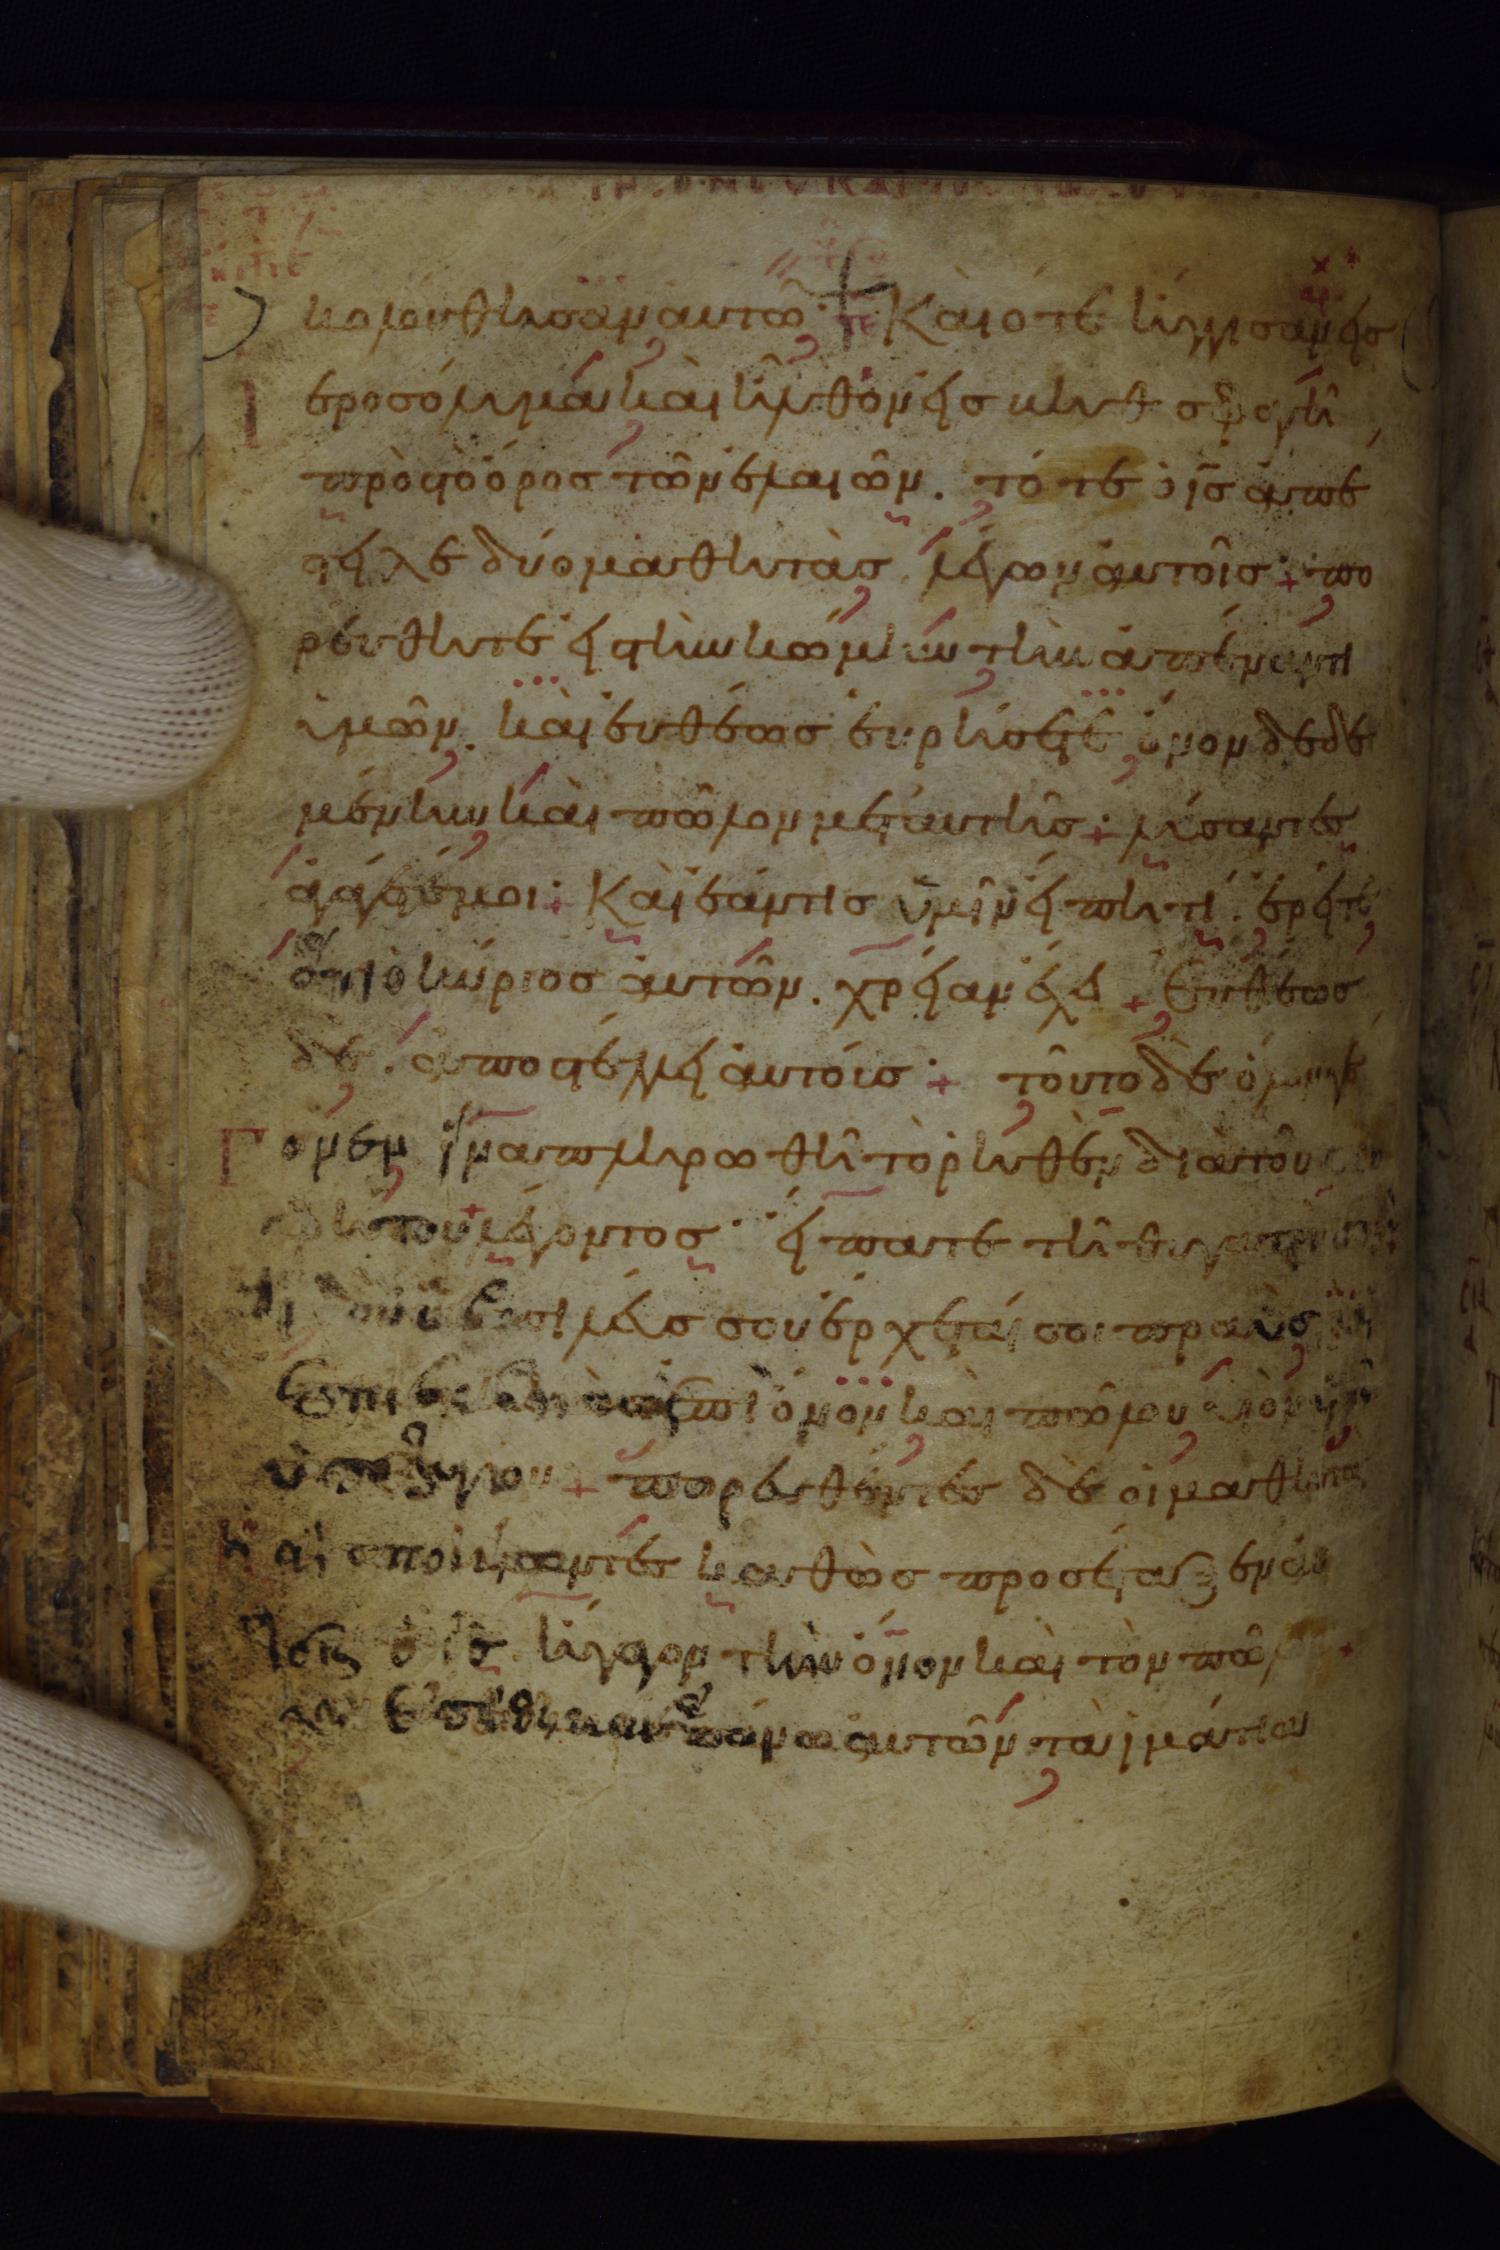 κολουθησαν αυτῶ· Καὶ ὅτε ἤγγισαν εἰσ
ϊεροσόλυμα καὶ ἦλθον εἰσ βηθσφαγῆ
πρὸσ τὸ ὄροσ τῶν ἐλαιῶν. τότε ὁ ις ἀπέ
στειλε δύο μαθητὰσ λέγων αὐτοῖσ· πο
ρεύθητε εἰσ τὴν κώμην τὴν ἀπέναντι
ὑμῶν. καὶ εὐθέωσ εὑρήσετε ὄνον δεδε
μένην καὶ πῶλον μετ αυτῆσ· λύσαντεσ
ἀγάγετέ μοι· Καὶ ἐάν τισ ὑμῖν εἴπη τι. ἐρεῖτε
ὅτι ὁ κύριοσ ἀυτῶν. χρείαν ἔχει Ευθέωσ
δὲ. ἀποστέλλει ἀυτόυσ· τοῦτο δὲ ὅλον γέ
γονεν ἵνα πληρωθῆ τὸ ῥηθὲν διὰ τοῦ
προφήτου λέγοντοσ· εἴπατε τῆ θυγατρὶ σιὼν
ϊδοὺ ὁ βασιλεύσ σου ἔρχεταί σοι πραὺσ καὶ
ἐπιβεβηκὼσ ἐπὶ ὄνον καὶ πῶλον υἱὸν
ὑποζυγίου πορευθέντεσ δὲ οἱ μαθηταὶ
Καὶ ποιήσαντεσ καθὼσ προσέταξεν αὐ
τοῖς ὁ ις ἤγαγον τὴν ὄνον καὶ τὸν πῶ
λον ἐπέθηκαν ἐπάνω ἀυτῶν τὰ ἱμάτια